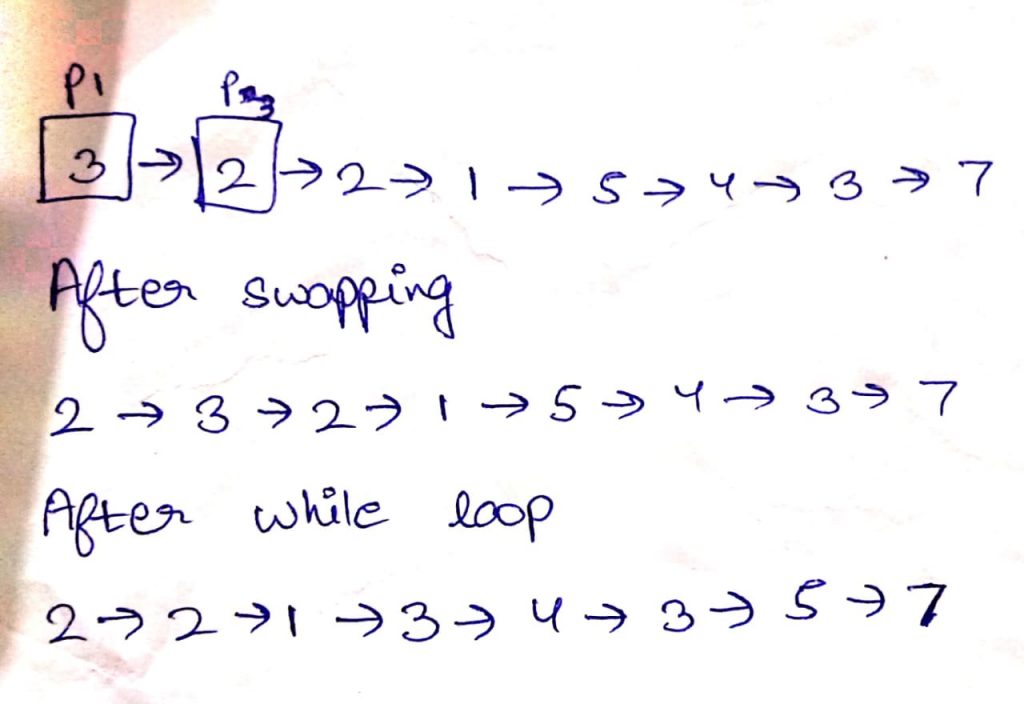 P1 P3
3 → 2 → 2 → 1 → 5 → 4 → 3 → 7
After swapping
2 → 3 → 2 → 1 → 5 → 4 → 3 → 7
After while loop
2 → 2 → 1 → 3 → 4 → 3 → 5 → 7